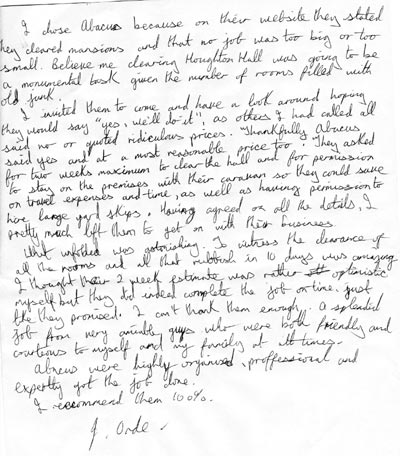 I chose Abacus because on their website they stated
they cleared mansions and that no job was too big or too
small. Believe me clearing Houghton Hall was going to be
a monumental task given the number of rooms filled with
old junk.
I invited them to come and have a look around hoping
they would say "yes, we'll do it", as others I had called all
said no or quoted ridiculous prices. Thankfully Abacus
said yes and at a most reasonable price too. They asked
for two weeks maximum to clear the hall and for permission
to stay on the premises with their caravan so they could save
on travel expenses and time, as well as having permission to
hire large yard skips. Having agreed on all the details, I
pretty much left them to get on with their business
What unfolded was astonishing. To witness the clearance of
all the rooms and all that rubbish in 10 days was amazing
I thought their 2 week estimate was rather optimistic
myself but they did indeed complete the job on time. just
like they promised. I can't thank them enough. A splendid
job from very amiable guys who were both friendly and
courteous to myself and my family at all times.
Abacus were highly organised, proffessional and
expertly got the job done.
I recommend them 100%.
J. Orde